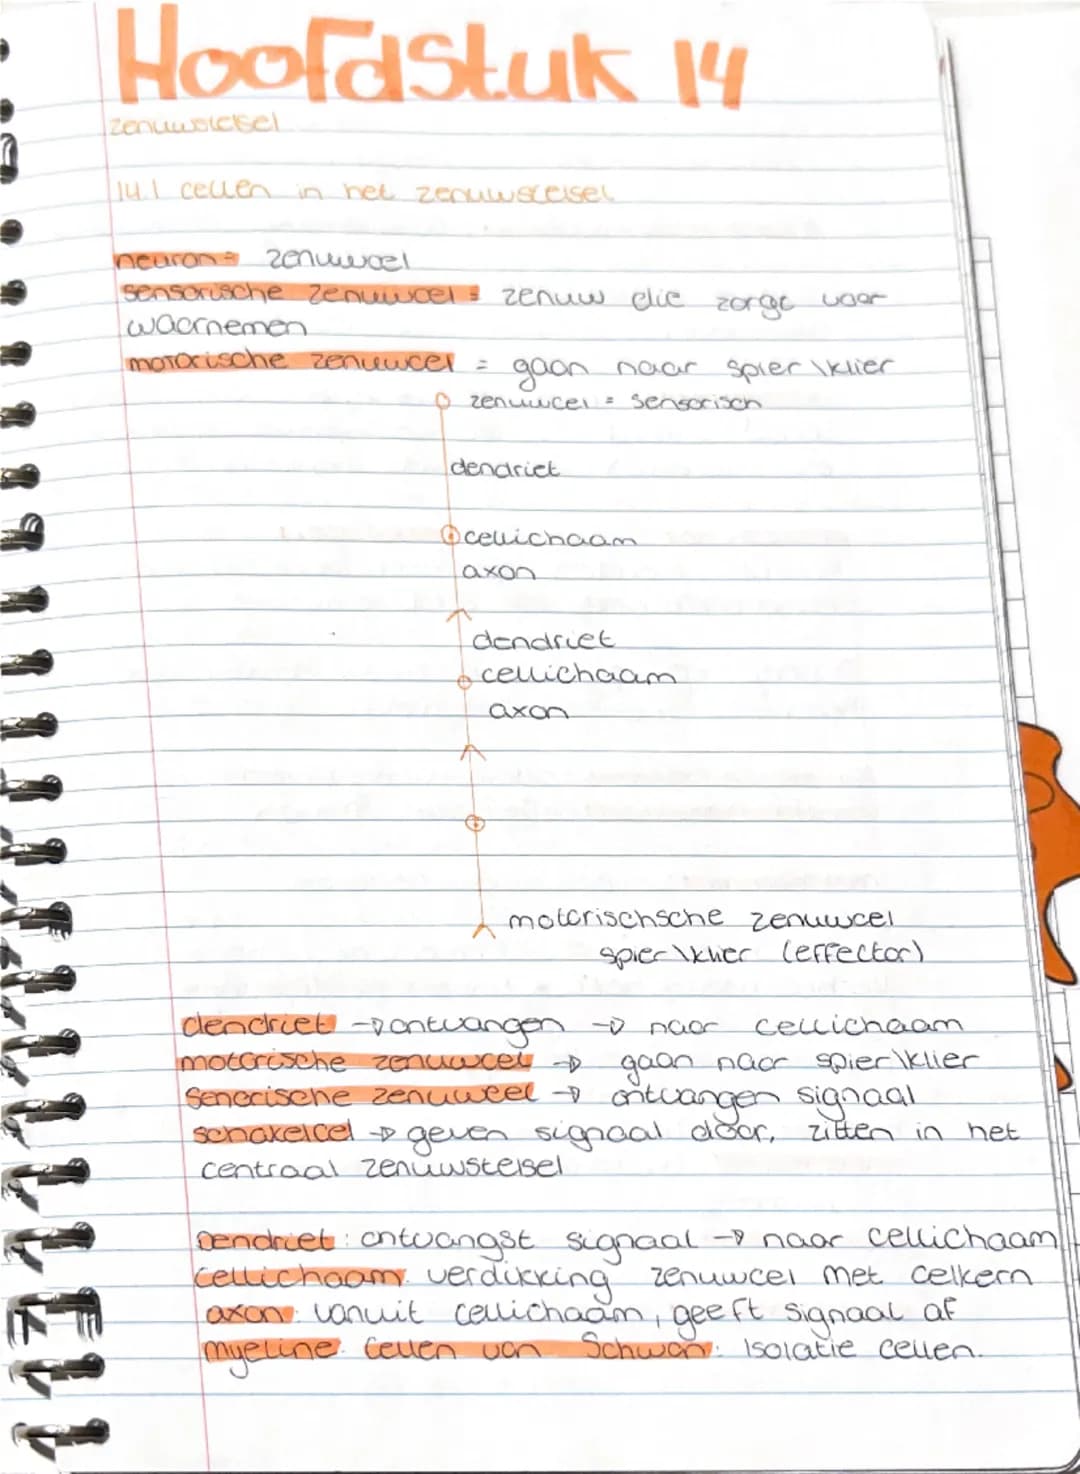 Hoofdstuk 14
zenuwstelsel
14.1 cellen in het zenuwstelsel
neuron = zenuwcel
sensorische zenuwcel = zenuw die zorgt voor
waarnemen
motorische zenuwcel = gaan naar spier\klier
zenuwcel = sensorisch
dendriet
cellichaam
axon
dendriet
cellichaam
axon
motorischsche zenuwcel
spier\klier (effector)
dendriet → ontvangen → naar cellichaam
motorische zenuwcel → gaan naar spier\klier
Senorische zenuwcel → ontvangen signaal
schakelcel → geven signaal door, zitten in het
centraal zenuwstelsel
Dendriet: ontvangst signaal → naar cellichaam
Cellichaam: verdikking zenuwcel met celkern
axon: vanuit cellichaam, geeft signaal af
myeline: Cellen van Schwan: Isolatie cellen.